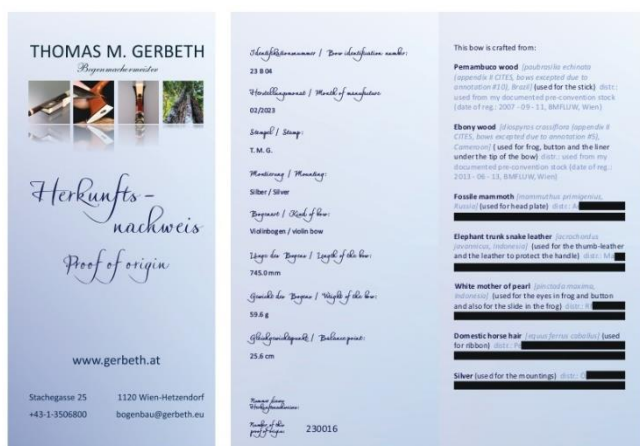 THOMAS M. GERBETH
Bogenmachermeister
Herkunfts-
nachweis
Proof of origin
www.gerbeth.at
Stachegasse 25
1120 Wien-Hetzendorf
+43-1-3506800
bogenbau@gerbeth.eu
Identifikationsnummer / Bow identification number:
23 B 04
Herstellungsmonat / Month of manufacture
02/2023
Stempel / Stamp:
T. M. G.
Montierung / Mounting:
Silber / Silver
Bogenart / Kind of bow:
Violinbogen / violin bow
Länge des Bogens / Length of the bow:
745.0 mm
Gewicht des Bogens / Weight of the bow:
59.6 g
Gleichgewichtspunkt / Balance point:
25.6 cm
Nummer dieses
Herkunftsnachweises:
Number of this
proof of origin:
230016
This bow is crafted from:
Pernambuco wood [paubrasilia echinata
(appendix II CITES, bows excepted due to
annotation #10), Brazil] (used for the stick) distr.:
used from my documented pre-convention stock
(date of reg.: 2007 - 09 - 11, BMFLUW, Wien)
Ebony wood [diospyros crassiflora (appendix II
CITES, bows excapted due to annotation #5),
Cameroon] ( used for frog, button and the liner
under the tip of the bow) distr.: used from my
documented pre-convention stock (date of reg.:
2013 - 06 - 13, BMFLUW, Wien)
Fossile mammoth [mammuthus primigenius,
Russia] (used for head plate) distr.:
Elephant trunk snake leather [acrochordus
javannicus, Indonesia] (used for the thumb-leather
and the leather to protect the handle) distr.: Ma
White mother of pearl [pinctada maxima,
Indonesia] (used for the eyes in frog and button
and also for the slide in the frog) distr.:
Domestic horse hair [equus ferrus caballus] (used
for ribbon) distr.:
Silver (used for the mountings) distr.: